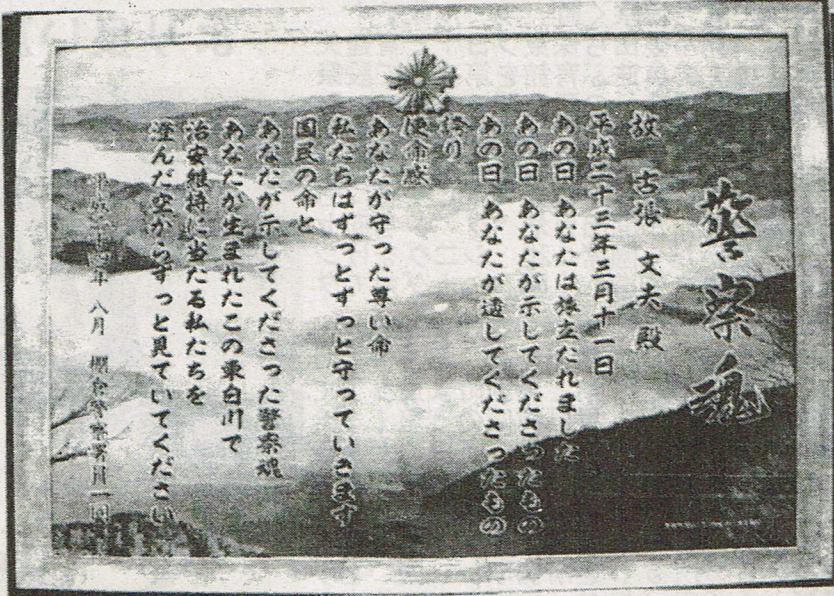 警察魂
故 古張 文夫 殿
平成二十三年三月十一日
あの日 あなたは旅立たれました
あの日 あなたが示してくださったもの
あの日 あなたが遺してくださったもの
誇り
使命感
あなたが守った尊い命
私たちはずっとずっと守っていきます
国民の命と
あなたが示してくださった警察魂
あなたが生まれたこの東白川で
治安維持に当たる私たちを
澄んだ空からずっと見ていてください
平成二十四年 八月 棚倉警察署員一同